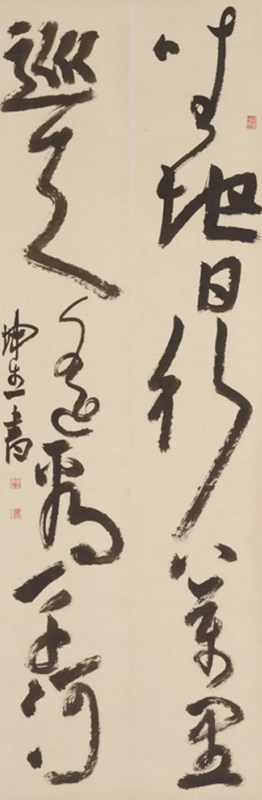 坐地日行八萬里
巡天遙看一千河
坤生一書